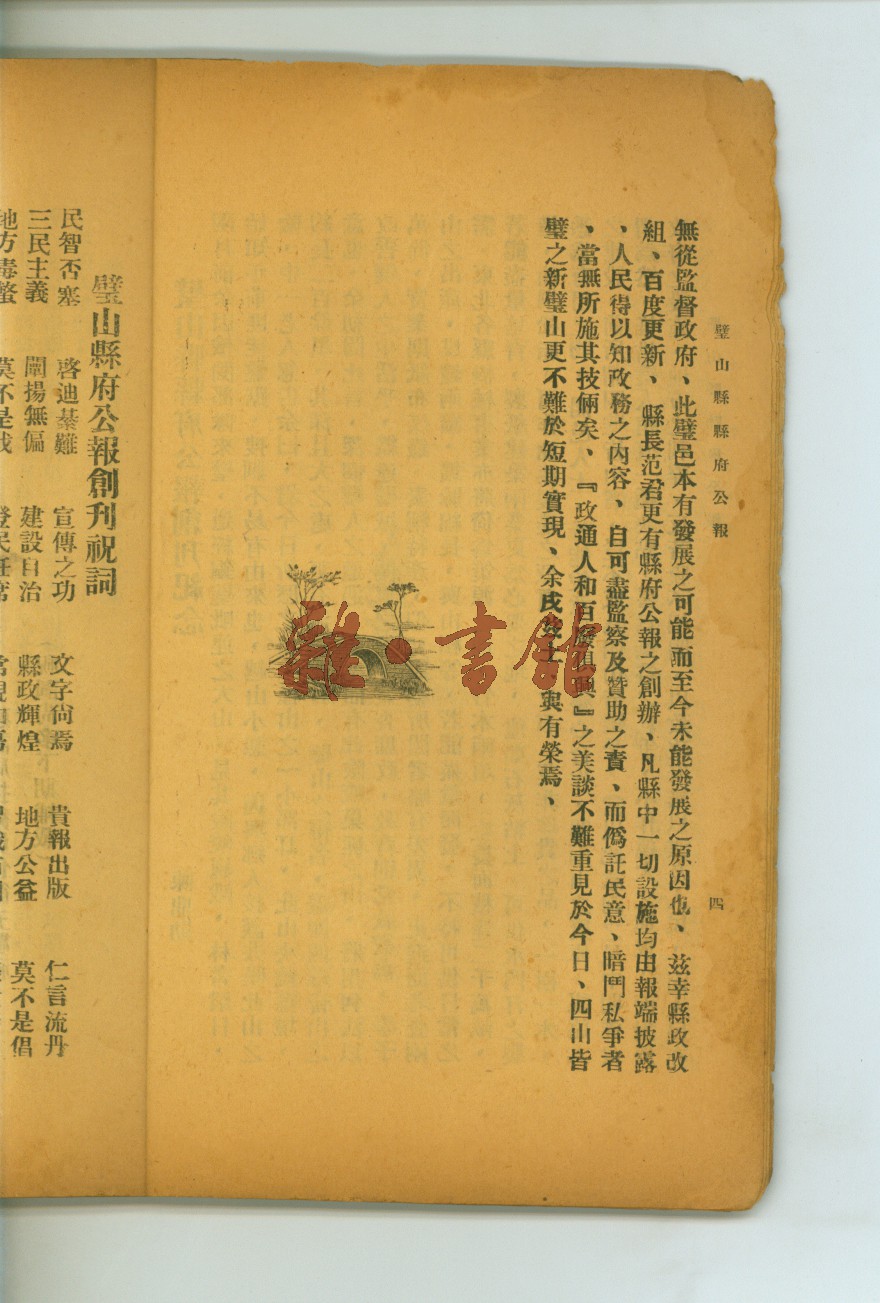 璧山縣縣府公報
四
無從監督政府、此璧邑本有發展之可能而至今未能發展之原因也、茲幸縣政改
組、百度更新、縣長范君更有縣府公報之創辦、凡縣中一切設施均由報端披露
、人民得以知政務之內容、自可盡監察及贊助之責、而僞託民意、暗鬥私爭者
、當無所施其技倆矣、『政通人和百廢俱興』之美談不難重見於今日、四山皆
璧之新璧山更不難於短期實現、余戍茲土、與有榮焉、
雜·書館
璧山縣府公報創刊祝詞
民智否塞 啓迪綦難 宣傳之功 文字尙焉 貴報出版 仁言流丹
三民主義 闡揚無偏 建設自治 縣政輝煌 地方公益 莫不是倡
地方毒螫 莫不是